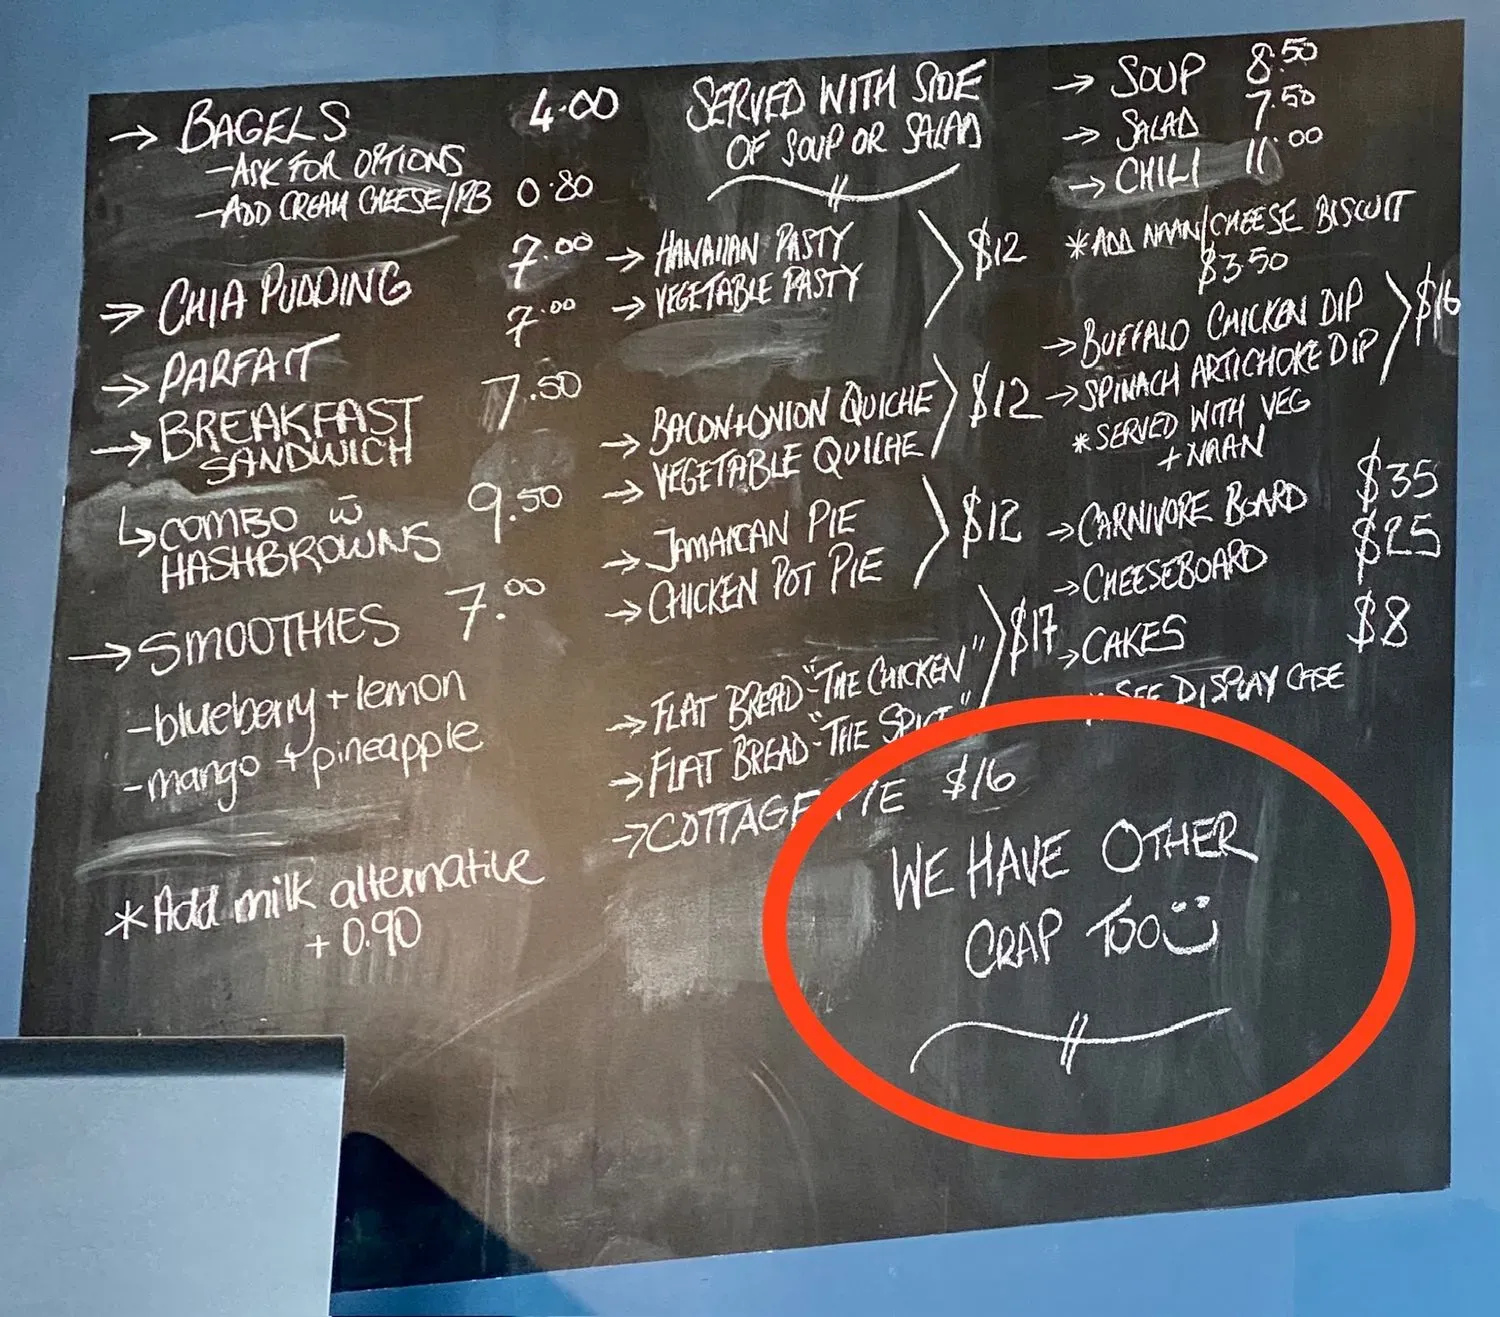 → BAGELS 4.00
- ASK FOR OPTIONS
- ADD CREAM CHEESE/PB 0.80
→ CHIA PUDDING 7.00
→ PARFAIT 7.00
→ BREAKFAST 7.50
SANDWICH
↳ COMBO w̄ 9.50
HASHBROWNS
→ SMOOTHIES 7.00
- blueberry + lemon
- mango + pineapple
* Add milk alternative
+ 0.90
SERVED WITH SIDE
OF SOUP OR SALAD
→ HAWAIIAN PASTY
→ VEGETABLE PASTY
$12
→ BACON + ONION QUICHE
→ VEGETABLE QUICHE
$12
→ JAMAICAN PIE
→ CHICKEN POT PIE
$12
→ FLAT BREAD - "THE CHICKEN"
→ FLAT BREAD - "THE
$17
→ COTTAGE $16
→ SOUP 8.50
→ SALAD 7.50
→ CHILI 11.00
* ADD NAAN/CHEESE BISCUIT
$3.50
→ BUFFALO CHICKEN DIP
→ SPINACH ARTICHOKE DIP
$16
* SERVED WITH VEG
+ NAAN
→ CARNIVORE BOARD $35
→ CHEESEBOARD $25
→ CAKES $8
SEE DISPLAY CASE
WE HAVE OTHER
CRAP TOO